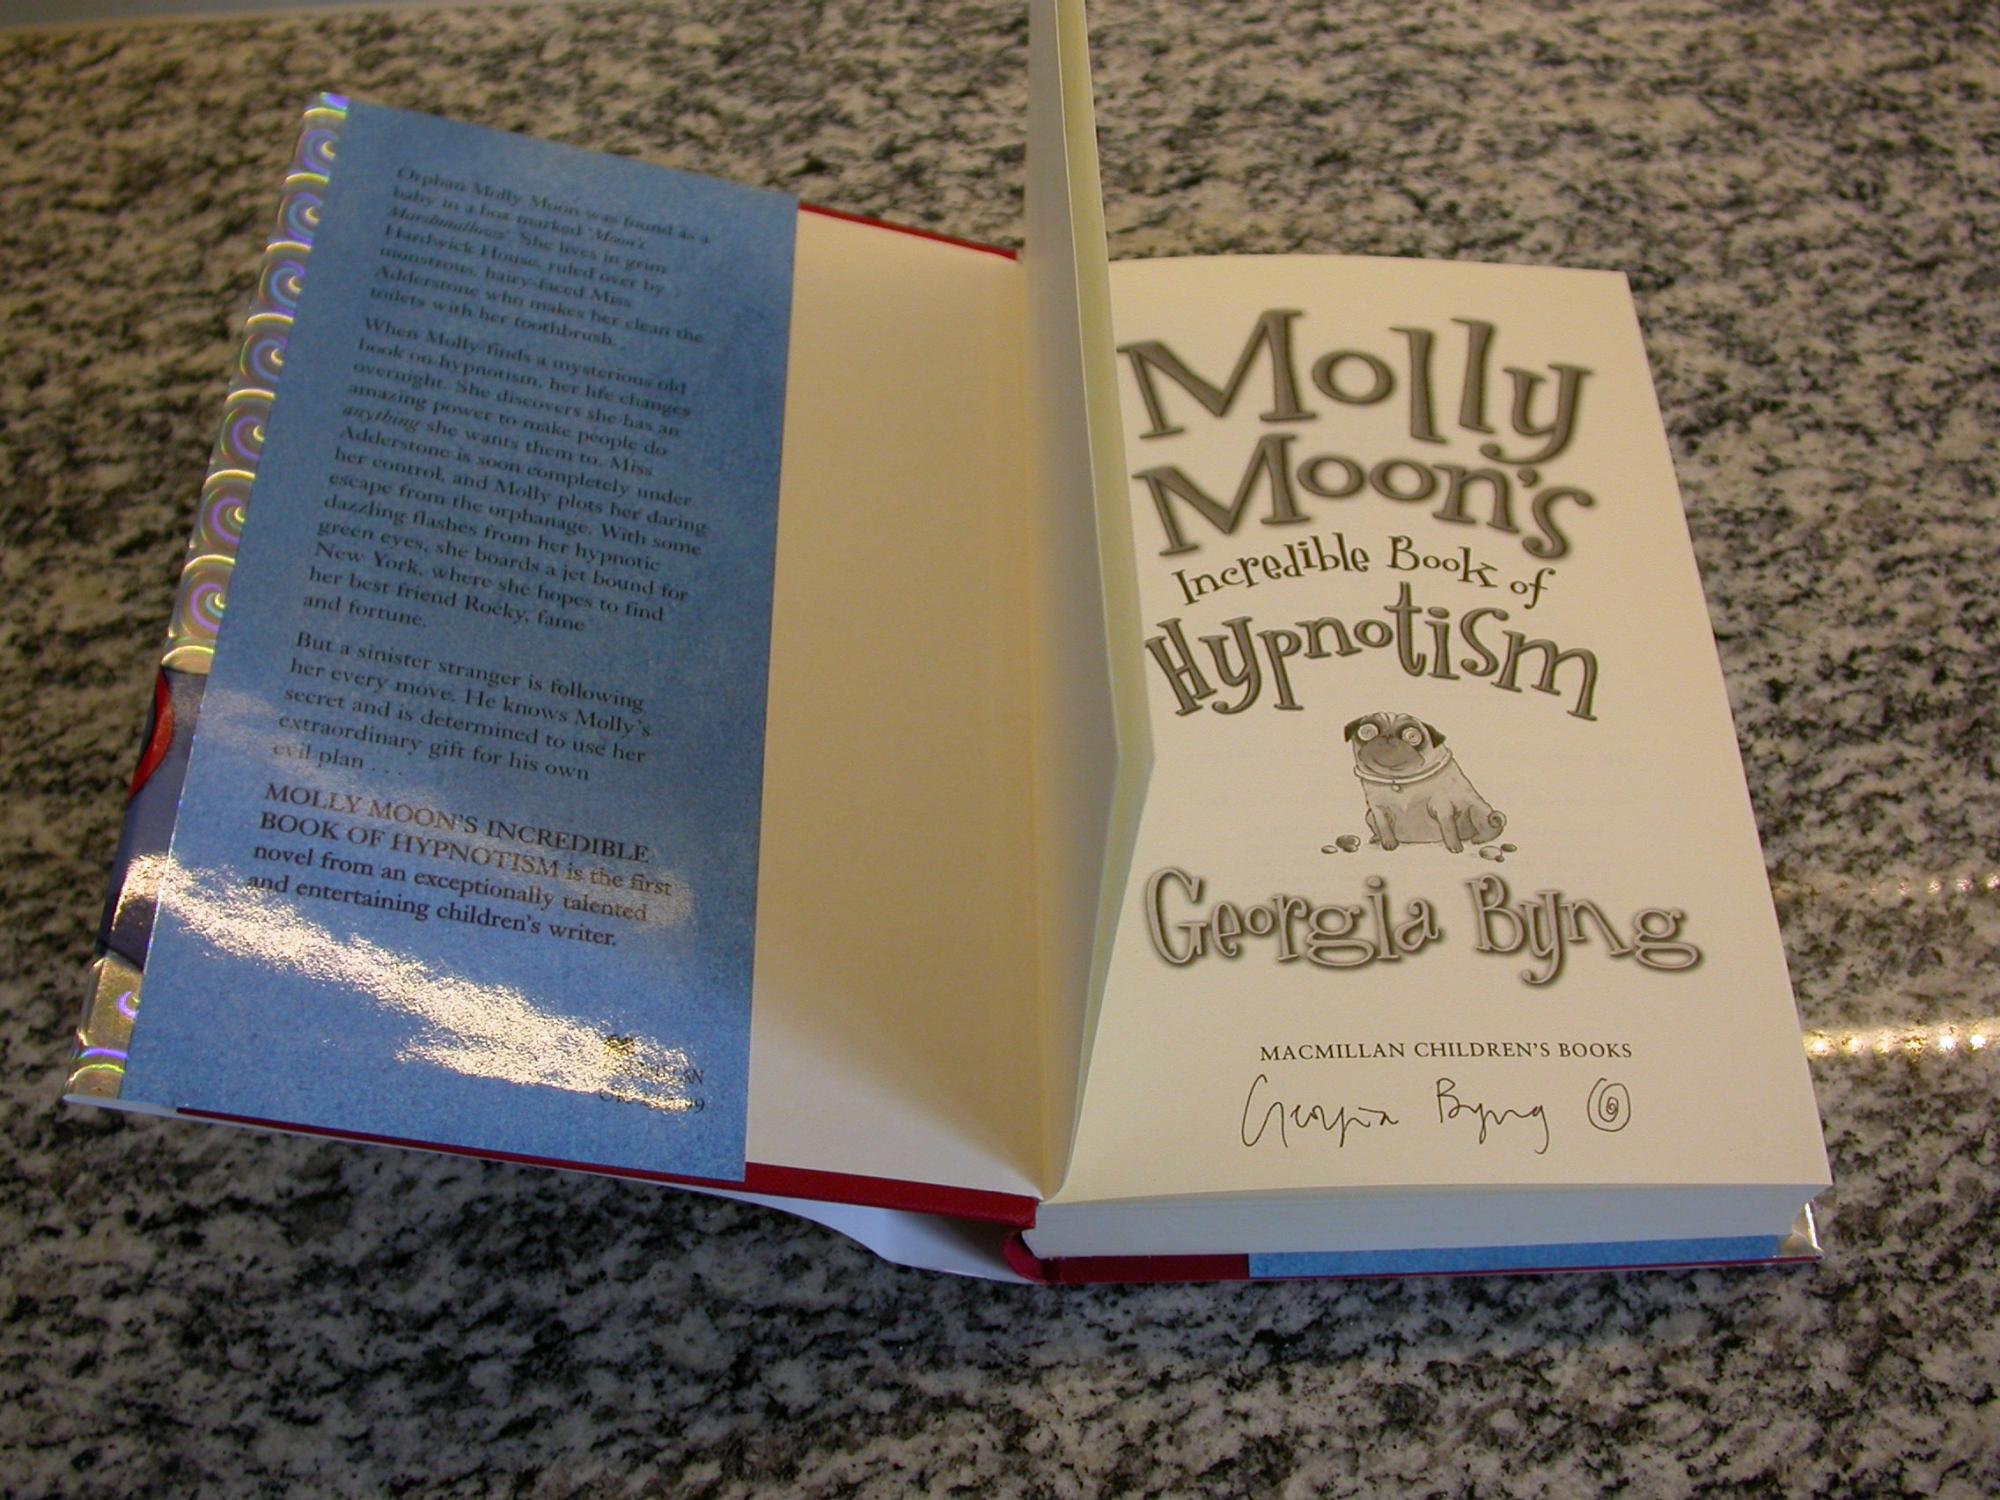 Orphan Molly Moon was found as a
baby in a box marked 'Moon's
Marshmallows'. She lives in grim
Hardwick House, ruled over by
monstrous, hairy-faced Miss
Adderstone who makes her clean the
toilets with her toothbrush.
When Molly finds a mysterious old
book on hypnotism, her life changes
overnight. She discovers she has an
amazing power to make people do
anything she wants them to. Miss
Adderstone is soon completely under
her control, and Molly plots her daring
escape from the orphanage. With some
dazzling flashes from her hypnotic
green eyes, she boards a jet bound for
New York, where she hopes to find
her best friend Rocky, fame
and fortune.
But a sinister stranger is following
her every move. He knows Molly's
secret and is determined to use her
extraordinary gift for his own
evil plan . . .
MOLLY MOON'S INCREDIBLE
BOOK OF HYPNOTISM is the first
novel from an exceptionally talented
and entertaining children's writer.
Molly
Moon's
Incredible Book of
Hypnotism
Georgia Byng
MACMILLAN CHILDREN'S BOOKS
Georgia Byng